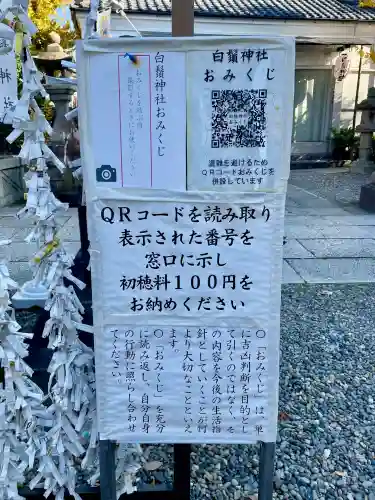 白鬚神社おみくじ
おみくじを選ぶ際
撮影するときに
お使い下さい。
白鬚神社
おみくじ
混雑を避けるため
QRコードおみくじを
併設しています
QRコードを読み取り
表示された番号を
窓口に示し
初穂料100円を
お納めください
〇「おみくじ」は、単
に吉凶判断を目的とし
て引くのではなく、そ
の内容を今後の生活指
針としていくことが何
より大切なことといえ
ます。
〇「おみくじ」を充分
に読み返し、自分自身
の行動に照らし合わせ
てください。